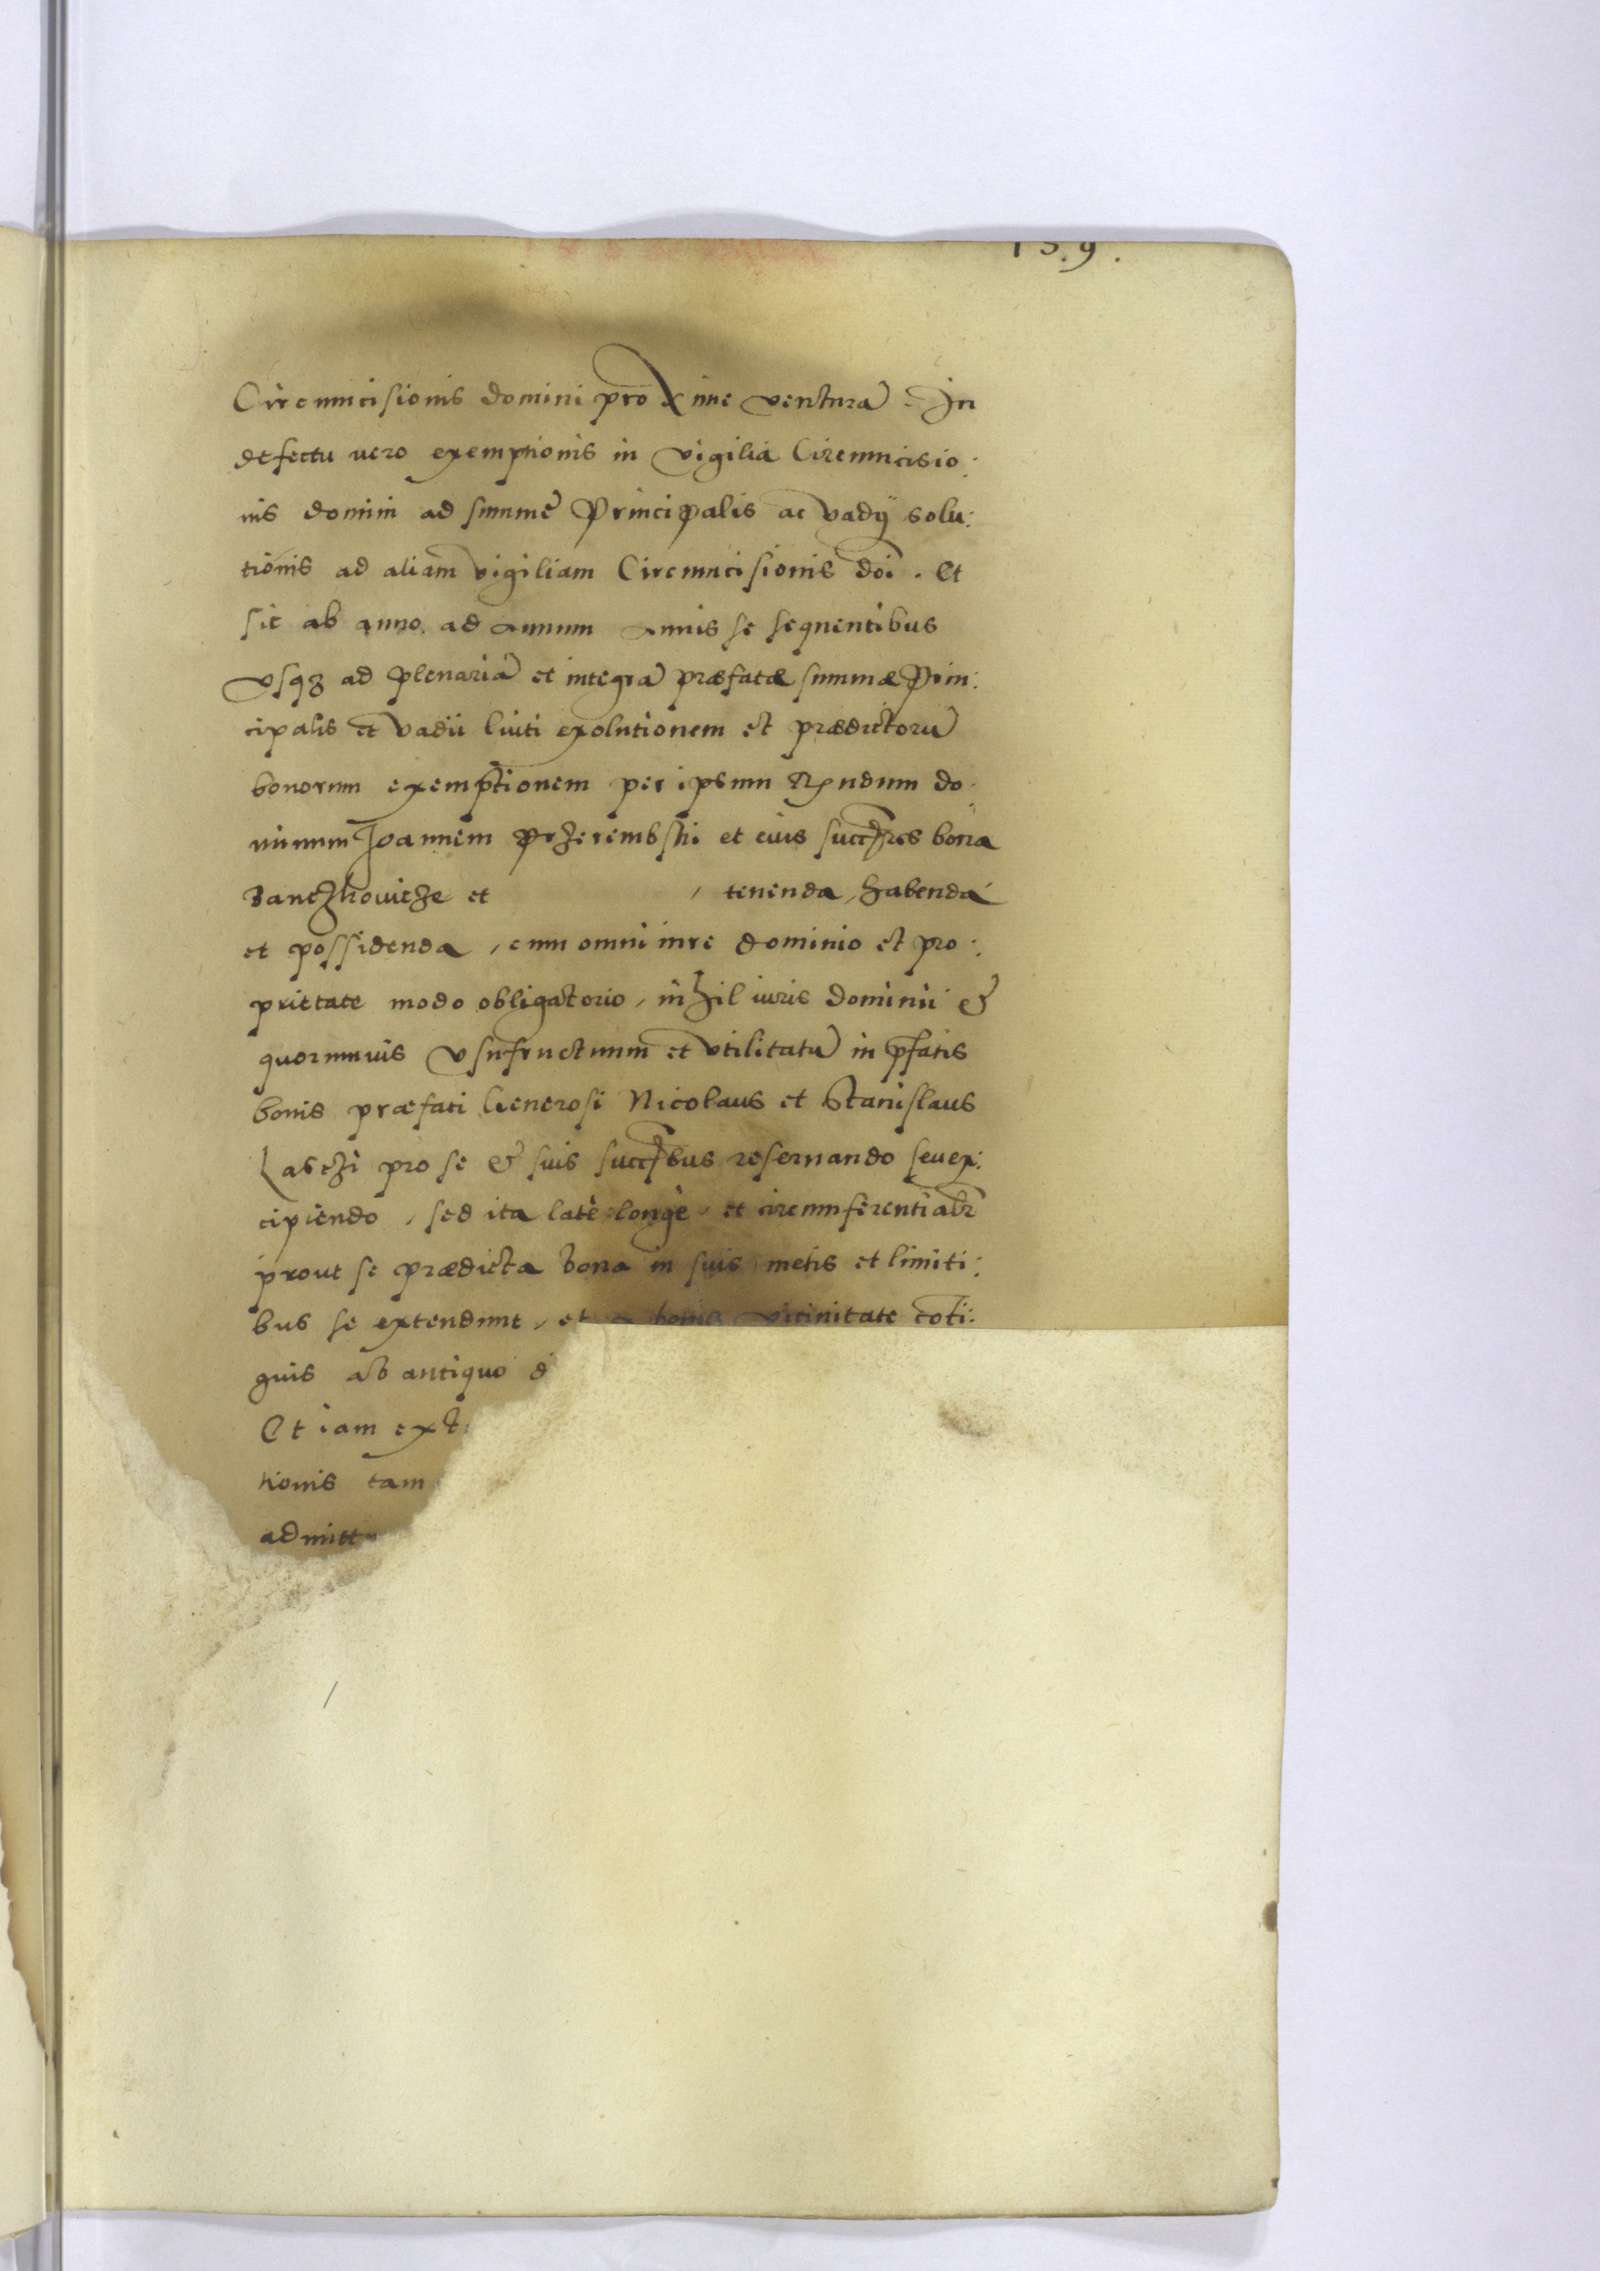 159.
Circumcisionis domini proxime ventura. In
defectu vero exemptionis in vigilia Circumcisio:
nis domini ad summe Principalis ac vadÿ solu:
tionis ad aliam vigiliam Circumcisionis doi. Et
sic ab anno. ad annum annis se sequentibus
vsqz ad plenariā et integrā præfatæ summæ Prin:
cipalis et vadii liuti exolutionem et prædictorū
bonorum exemptionem per ipsum Rndum do:
minum Joannem Przerembski et eius succres bona
Banczkowicze et , tenenda, habenda
et possidenda, cum omni iure dominio et pro:
prietate modo obligatorio, nihil iuris dominii &
quorumuis vsufructuum et vtilitatū in pfatis
bonis præfati Generosi Nicolaus et Stanislaus
Lasczi pro se & suis succbus reseruando seu ex:
cipiendo, sed ita latè longè, et circumferentialr
prout se prædicta bona in suis metis et limiti:
bus se extendunt, et bonis vicinitate coti:
guis ab antiquo d
Et iam ext
tionis tam
admitt